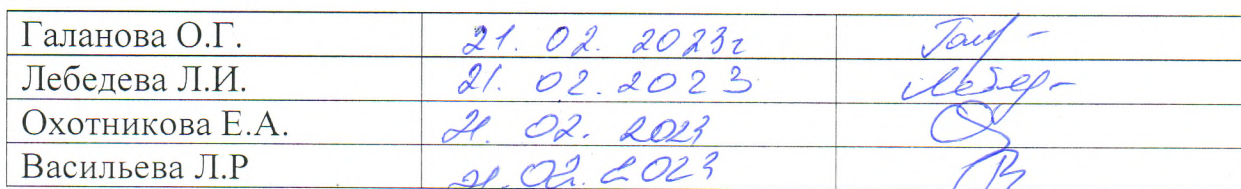 Галанова О.Г. 21. 02. 2023г Гал -
Лебедева Л.И. 21. 02. 2023 Лебед-
Охотникова Е.А. 21. 02. 2023
Васильева Л.Р 21.02.2023